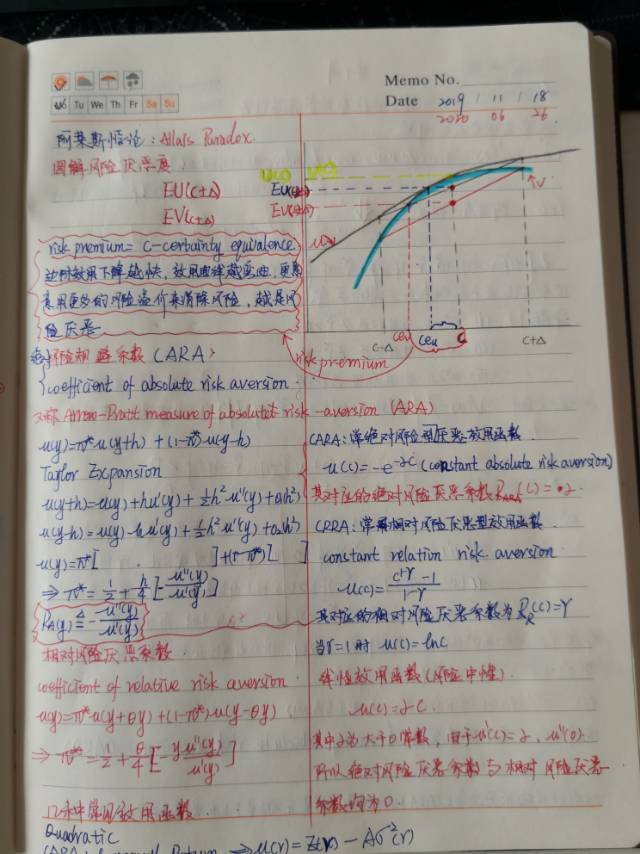 Memo No.
Mo Tu We Th Fr Sa Su
Date 2019 / 11 / 18
2020 06 26
阿莱斯悖论：Allais Paradox
图解风险厌恶度
EU(c±Δ)
EV(c±Δ)
risk premium = c-certainty equivalence
边际效用下降越快，效用曲线越弯曲，更
意用更多的风险溢价来消除风险，越是风
险厌恶
EU(c±Δ)
EV(c±Δ)
c-Δ
ceu
c
c+Δ
risk premium
绝对风险 系数 (ARA)
coefficient of absolute risk aversion
又称 Arrow-Pratt measure of absolute risk-aversion (ARA)
u(y)=π*u(y+h) + (1-π*)u(y-h)
Taylor Expansion
u(y+h)=u(y)+hu'(y)+½h²u''(y)+o(h²)
u(y-h)=u(y)-hu'(y)+½h²u''(y)+o(h²)
u(y)=π*[ ]+(1-π*)[ ]
⇒ π* = 1/2 + h/4 [-u''(y)/u'(y)]
R_A(y) ≜ -u''(y)/u'(y)
相对风险厌恶系数
coefficient of relative risk aversion
u(y)=π*u(y+θy)+(1-π*)u(y-θy)
⇒ π* = 1/2 + θ/4 [-yu''(y)/u'(y)]
几种常用效用函数
Quadratic
⇒ u(r) = E(r) - Aσ²(r)
CARA: 常绝对风险厌恶效用函数
u(c) = -e^-αc (constant absolute risk aversion)
其对应的绝对风险厌恶系数 (c) = α
CRRA: 常相对风险厌恶型效用函数
constant relation risk aversion
u(c) = (c^1-γ - 1)/(1-γ)
其对应的相对风险厌恶系数为 R_R(c)=γ
当γ=1时 u(c)=lnc
线性效用函数(风险中性)
u(c)=αc
其中α为大于0常数，由于u'(c)=α，u''(c)
所以绝对风险厌恶系数与相对风险厌恶
系数均为0.